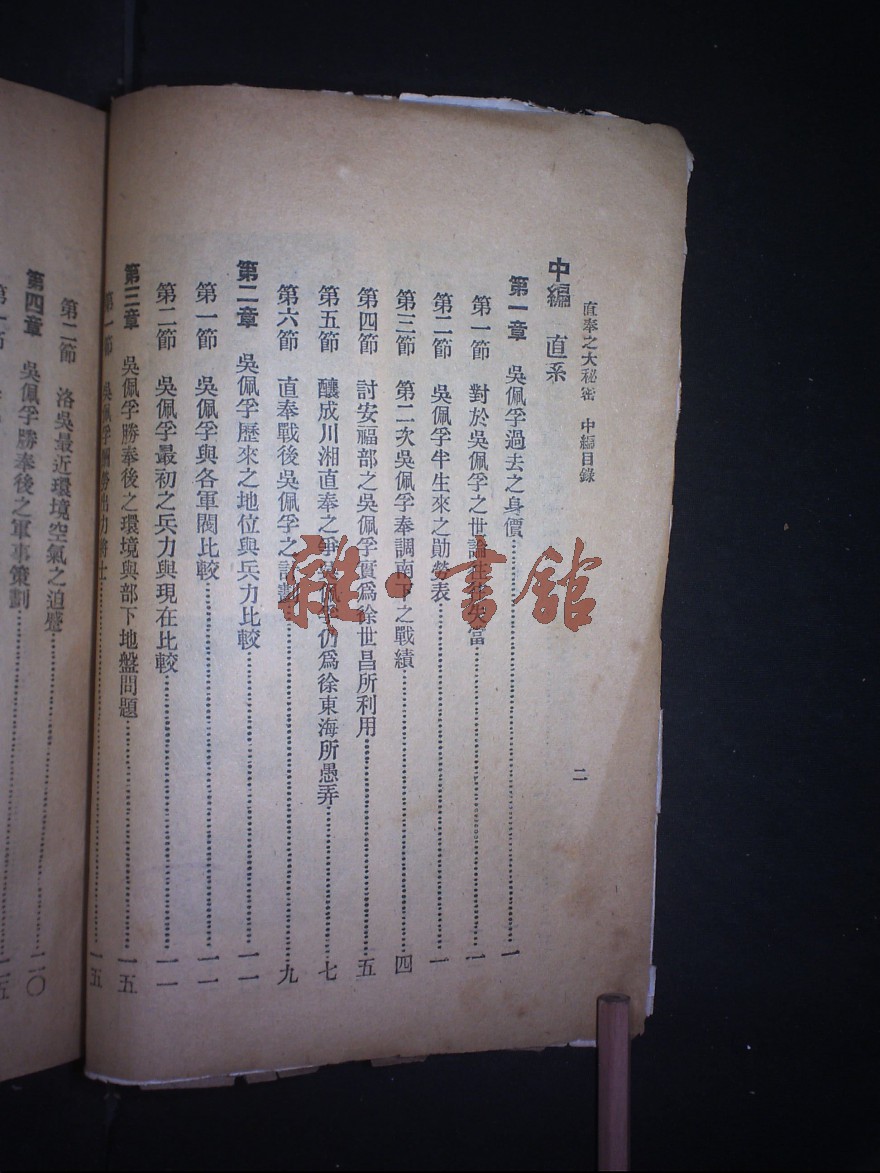 直奉之大秘密 中編目錄 二
中編 直系
第一章 吳佩孚過去之身價…………一
第一節 對於吳佩孚之世論往往失當…………一
第二節 吳佩孚半生來之勛勞表…………一
第三節 第二次吳佩孚奉調南下之戰績…………四
第四節 討安福部之吳佩孚實爲徐世昌所利用…………五
第五節 釀成川湘直奉之爭吳佩孚仍爲徐東海所愚弄…………七
第六節 直奉戰後吳佩孚之計劃…………九
第二章 吳佩孚歷來之地位與兵力比較…………一一
第一節 吳佩孚與各軍閥比較…………一一
第二節 吳佩孚最初之兵力與現在比較…………一一
第三章 吳佩孚勝奉後之環境與部下地盤問題…………一五
第一節 吳佩孚酬勞出力將士…………一五
第二節 洛吳最近環境空氣之迫蹙
第四章 吳佩孚勝奉後之軍事策劃…………二〇
第一節
雜·書館